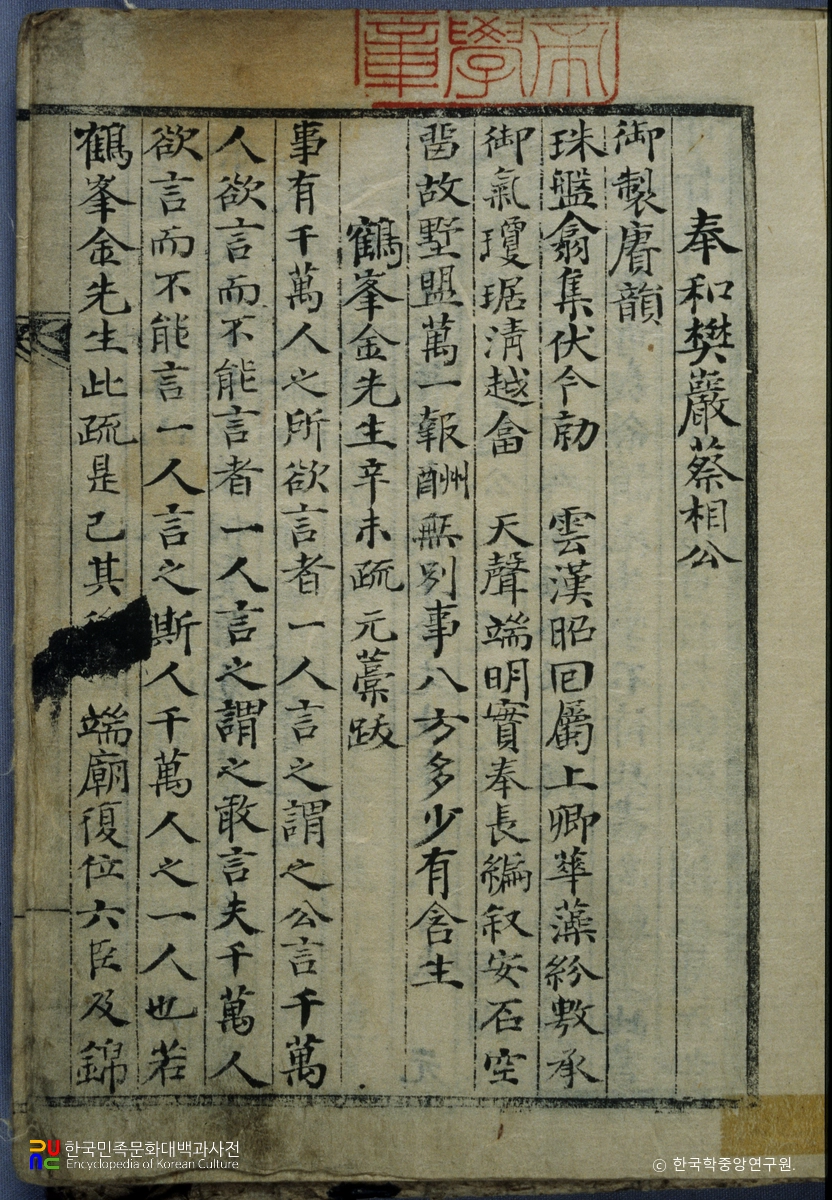 奉和樊巖蔡相公
御製賡韻
珠盤翕集伏今勍 雲漢昭回屬上卿華藻紛敷承
御氣瓊琚淸越畣 天聲端明實奉長編叙安石空
留故墅盟萬一報酬無別事八方多少有含生
鶴峯金先生辛未疏元藁跋
事有千萬人之所欲言者一人言之謂之公言千萬
人欲言而不能言者一人言之謂之敢言夫千萬人
欲言而不能言一人言之斯人千萬人之一人也若
鶴峯金先生此疏是已其 端廟復位六臣及錦
한국민족문화대백과사전
Encyclopedia of Korean Culture
ⓒ 한국학중앙연구원.